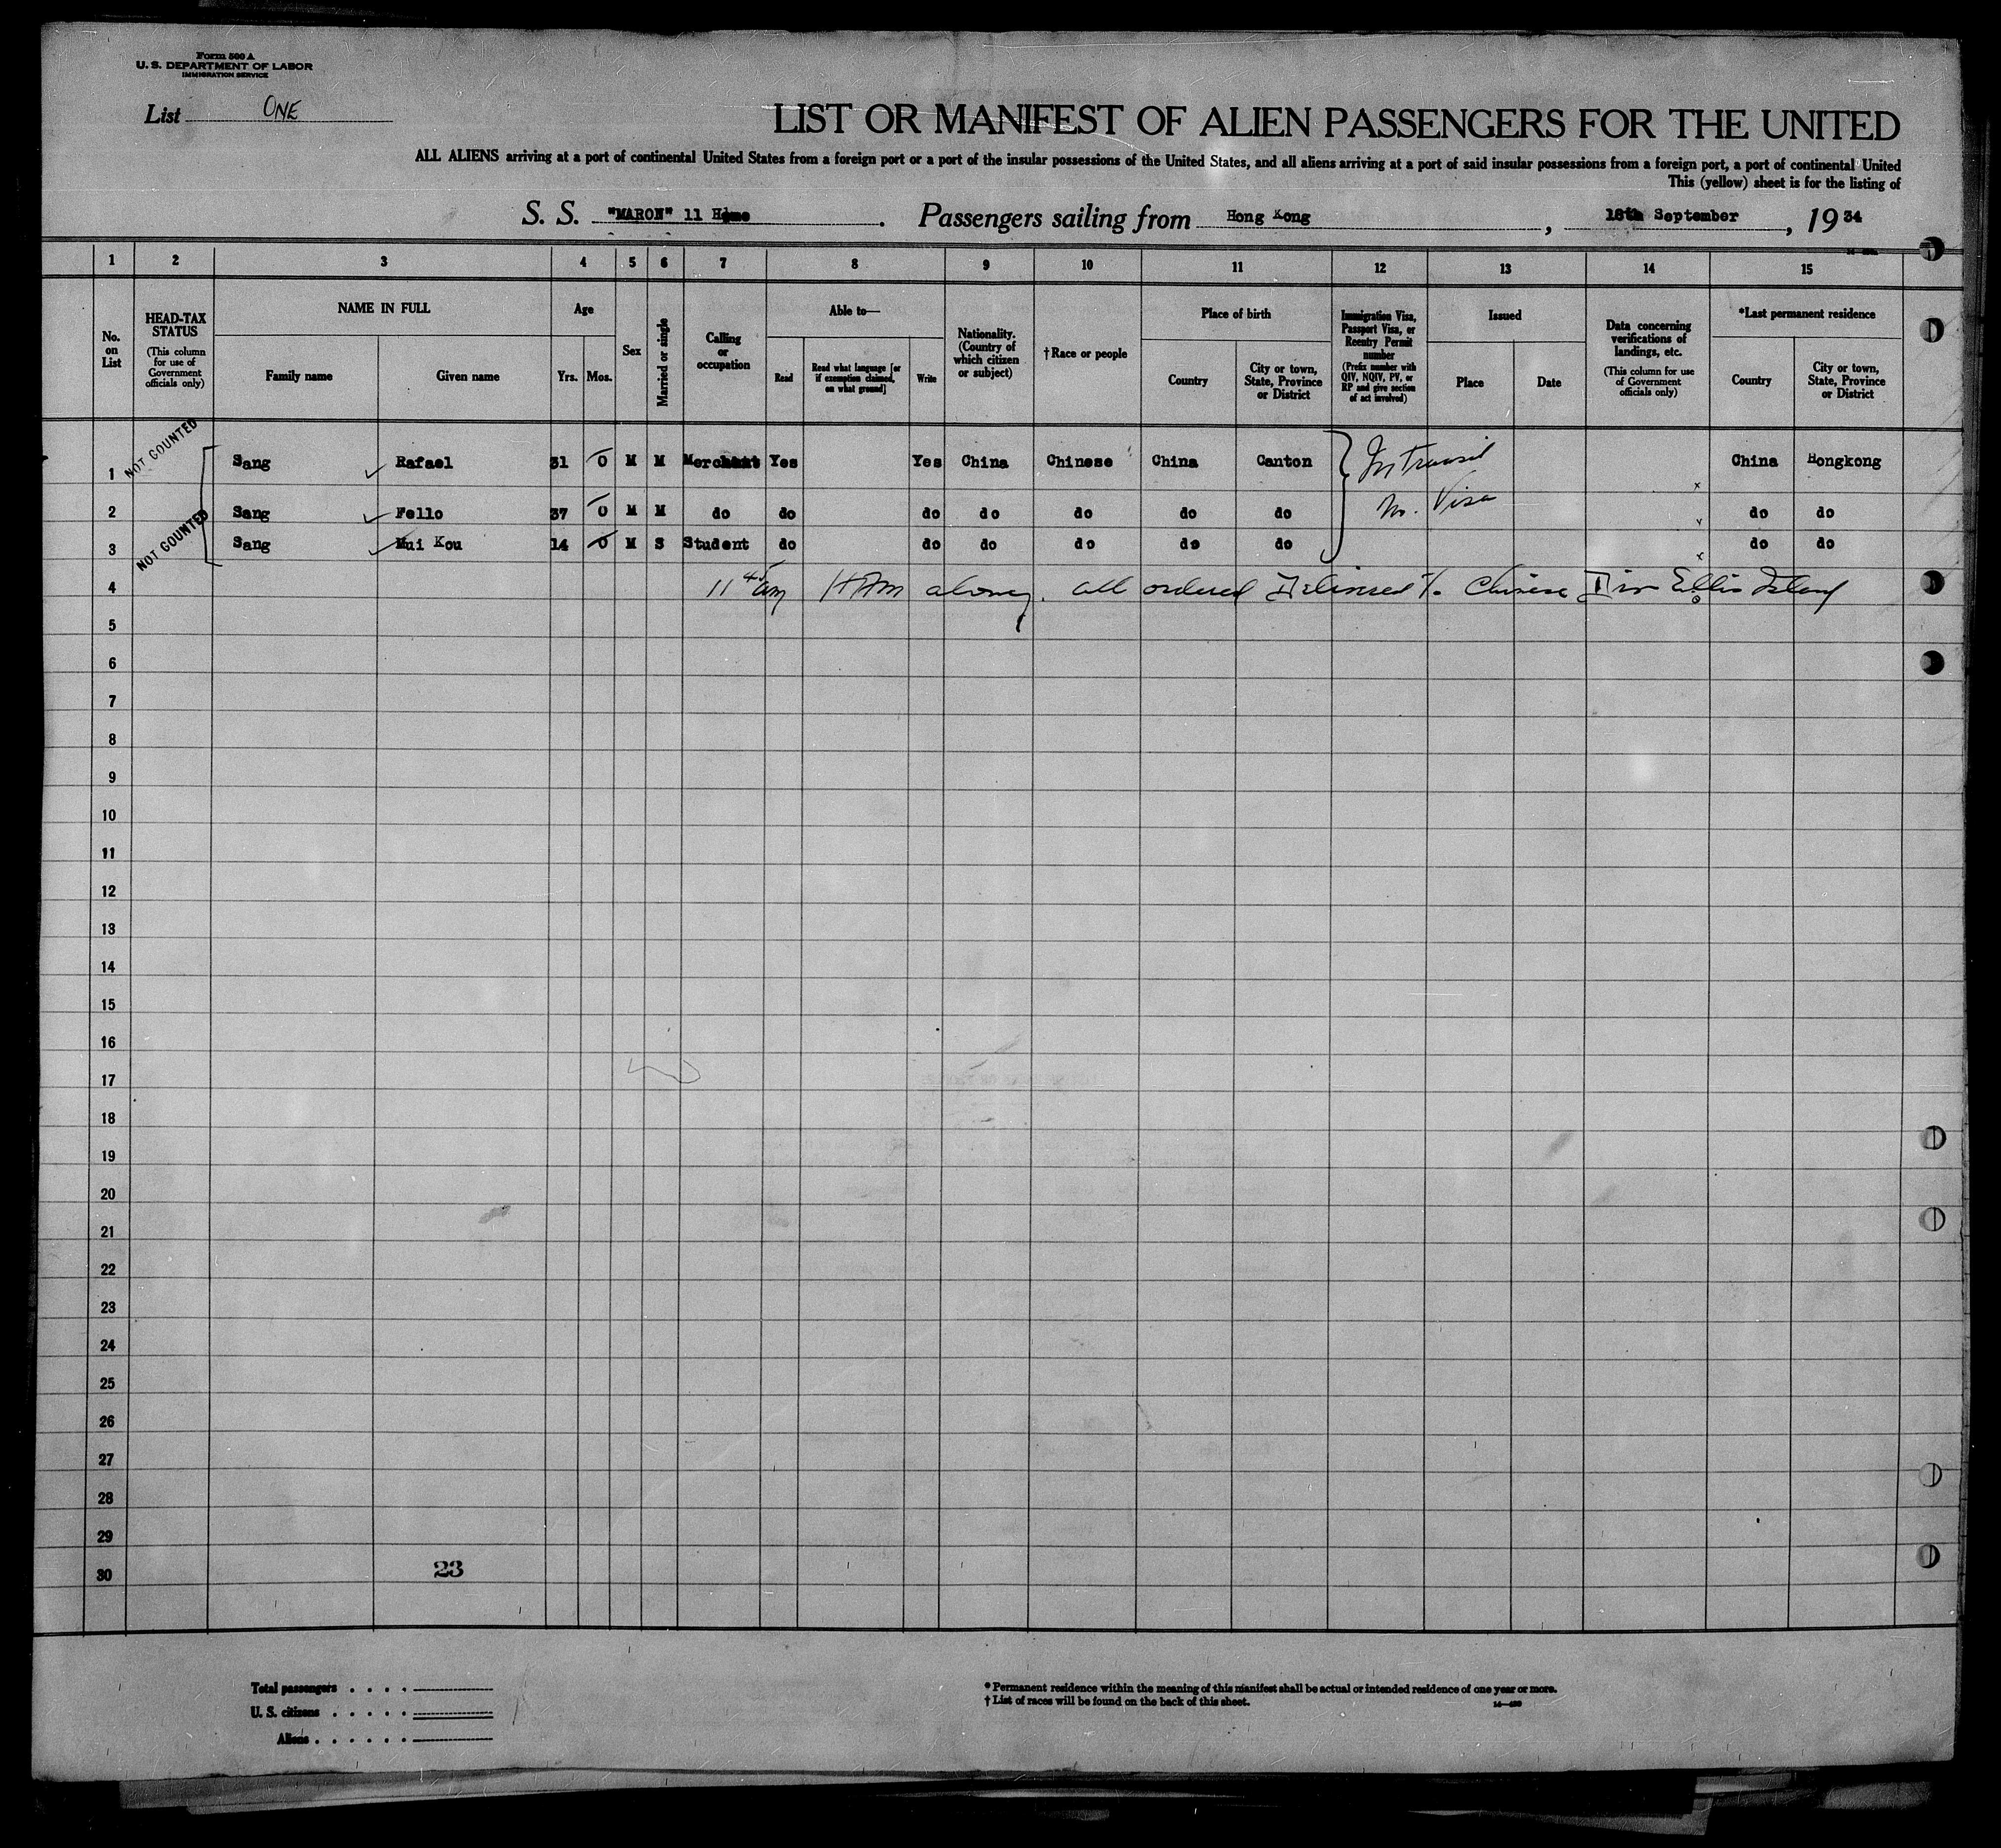 Form 500 A
U. S. DEPARTMENT OF LABOR
IMMIGRATION SERVICE
List ONE
LIST OR MANIFEST OF ALIEN PASSENGERS FOR THE UNITED
ALL ALIENS arriving at a port of continental United States from a foreign port or a port of the insular possessions of the United States, and all aliens arriving at a port of said insular possessions from a foreign port, a port of continental United
This (yellow) sheet is for the listing of
S. S. "MARON" 11 Home . Passengers sailing from Hong Kong , 18th September , 19 34
1 2 3 4 5 6 7 8 9 10 11 12 13 14 15
No. on List
HEAD-TAX STATUS
(This column for use of Government officials only)
NAME IN FULL
Family name Given name
Age
Yrs. Mos.
Sex
Married or single
Calling or occupation
Able to—
Read Read what language [or if exemption claimed, on what ground] Write
Nationality. (Country of which citizen or subject)
†Race or people
Place of birth
Country City or town, State, Province or District
Immigration Visa, Passport Visa, or Reentry Permit number
(Prefix number with QIV, NQIV, PV, or RP and give section of act involved)
Issued
Place Date
Data concerning verifications of landings, etc.
(This column for use of Government officials only)
*Last permanent residence
Country City or town, State, Province or District
NOT COUNTED
1 Sang Rafael 31 0 M M Merchant Yes Yes China Chinese China Canton In Transit China Hongkong
2 Sang Fello 37 0 M M do do do do do do do No. Visa do do
NOT COUNTED
3 Sang Mui Kou 14 0 M S Student do do do do do do do do
4 11 45 am all ordered Chinese Div Ellis Island
5
6
7
8
9
10
11
12
13
14
15
16
17
18
19
20
21
22
23
24
25
26
27
28
29
30 23
Total passengers . . . .
U. S. citizens . . . . .
Aliens . . . . . .
* Permanent residence within the meaning of this manifest shall be actual or intended residence of one year or more.
† List of races will be found on the back of this sheet.